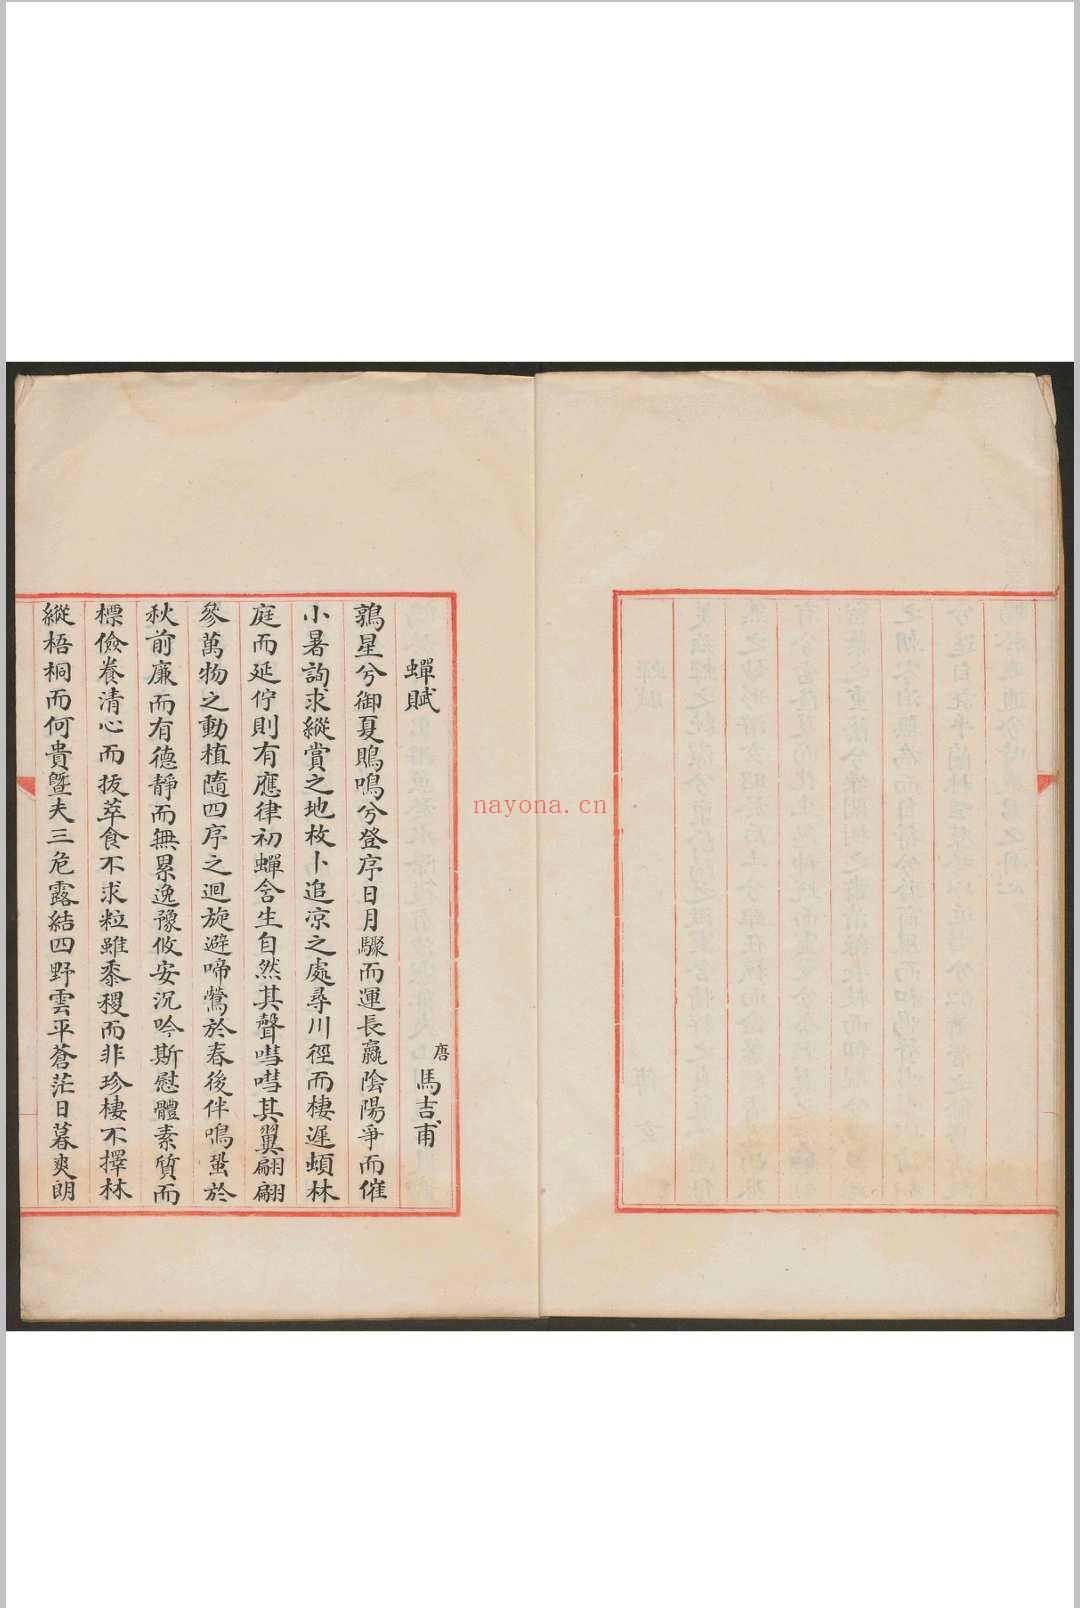 蟬賦
唐 馬吉甫
鶉星兮御夏鵙鳴兮登序日月驟而運長羸陰陽爭而催
小暑詢求縱賞之地枚卜追凉之處尋川徑而棲遲頓林
庭而延佇則有應律初蟬含生自然其聲嘒嘒其翼翩翩
參萬物之動植隨四序之迴旋避啼鶯於春後伴鳴蛩於
秋前廉而有德靜而無累逸豫攸安沉吟斯慰體素質而
標儉養清心而拔萃食不求粒雖黍稷而非珍棲不擇林
縱梧桐而何貴曁夫三危露結四野雲平蒼茫日暮爽朗
nayona.cn